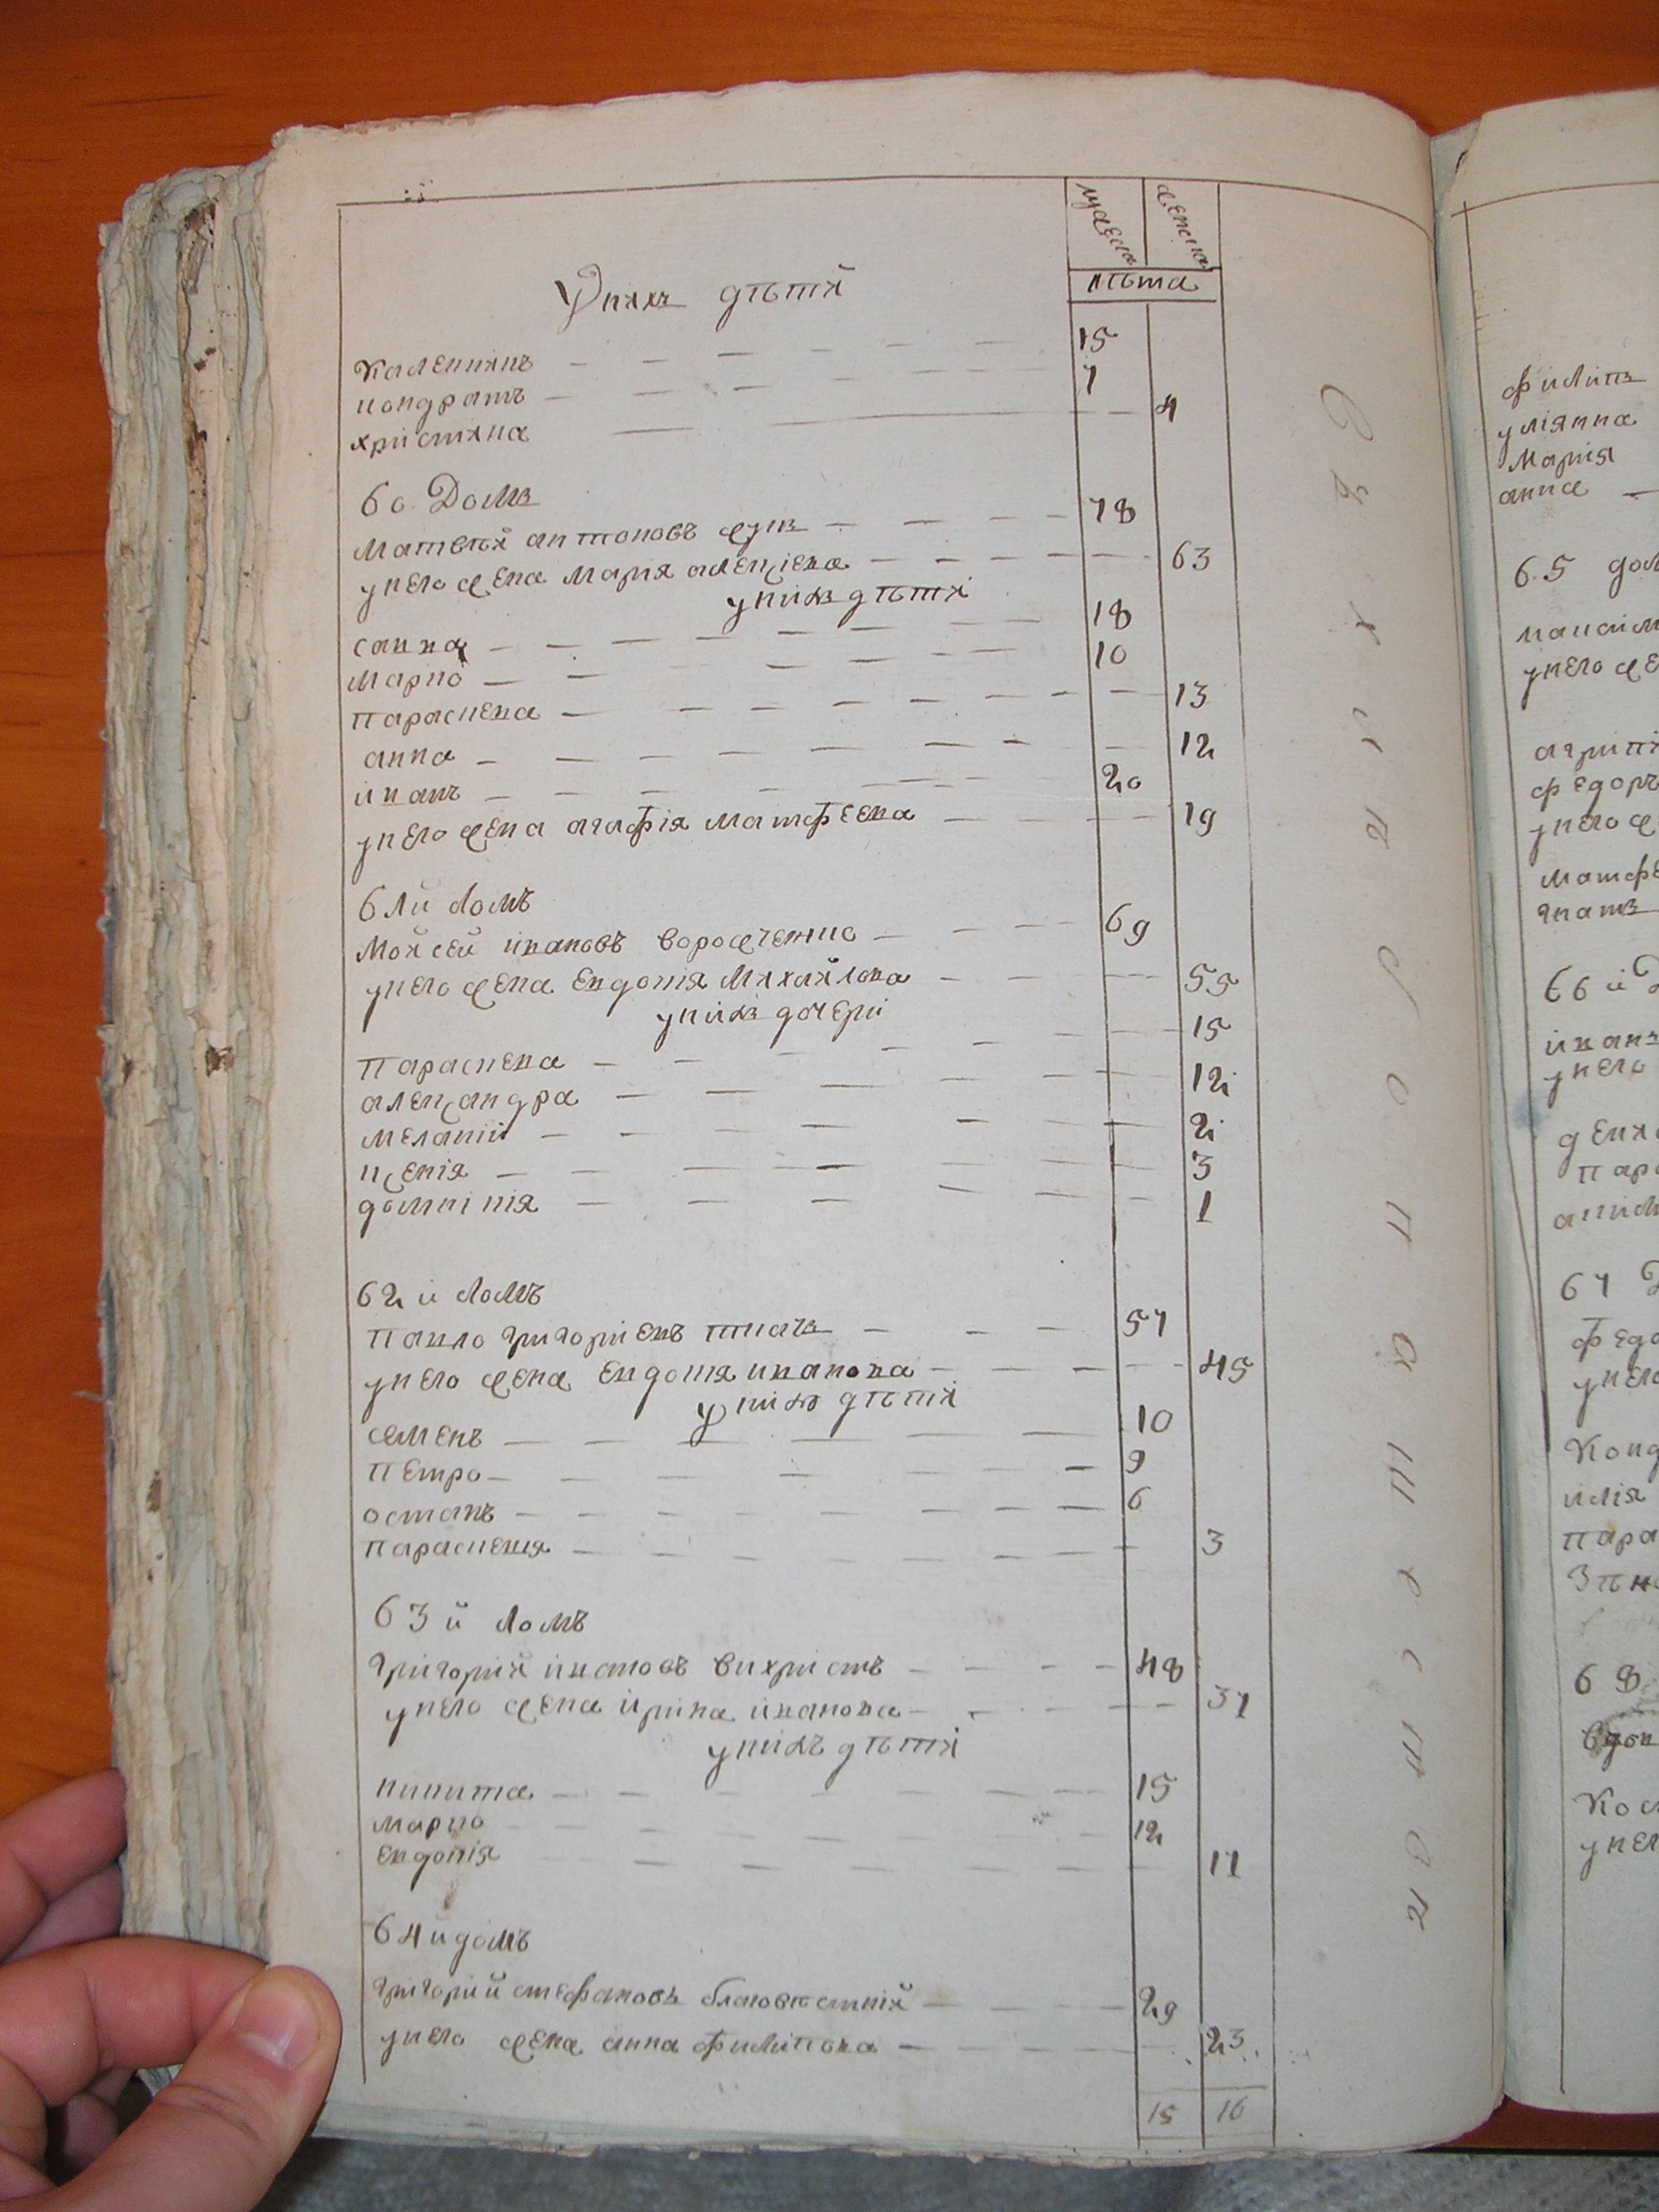 мужеска женска
лѣта
Унихъ дѣти
Калениикъ 15
кондратъ 7
христина 4
60. Домъ
Матвѣй антоновъ жукъ 78
унего жена мария алексіева 63
унихъ дѣти
савка 18
марко 10
параскева 13
анна 12
иванъ 20
унего жена агафія матфеева 19
61й домъ
Мойсей ивановъ вороженко 69
унего жена Евдокия михайлова 55
унихъ дочери
параскева 15
александра 12
меланий 2
ксенія 3
домникія 1
62й домъ
павло григориевъ ткачъ 57
унего жена Евдокия иванова 45
унихъ дѣти
семенъ 10
петро 9
остапъ 6
параскевия 3
63й домъ
григорий ивановъ вихристъ 48
унего жена ирина иванова 37
унихъ дѣти
никита 15
марко 12
евдокія 11
64й домъ
григорий стефановъ
унего жена анна филипова 23
29
15 16
филипъ
уліянна
Мария
анна
65 дом
максим
унего же
федоръ
унего ж
матфе
игнатъ
66й Д
иванъ
унего
пара
67 Д
федо
унего
Конд
илія
пара
68
вдов
унег